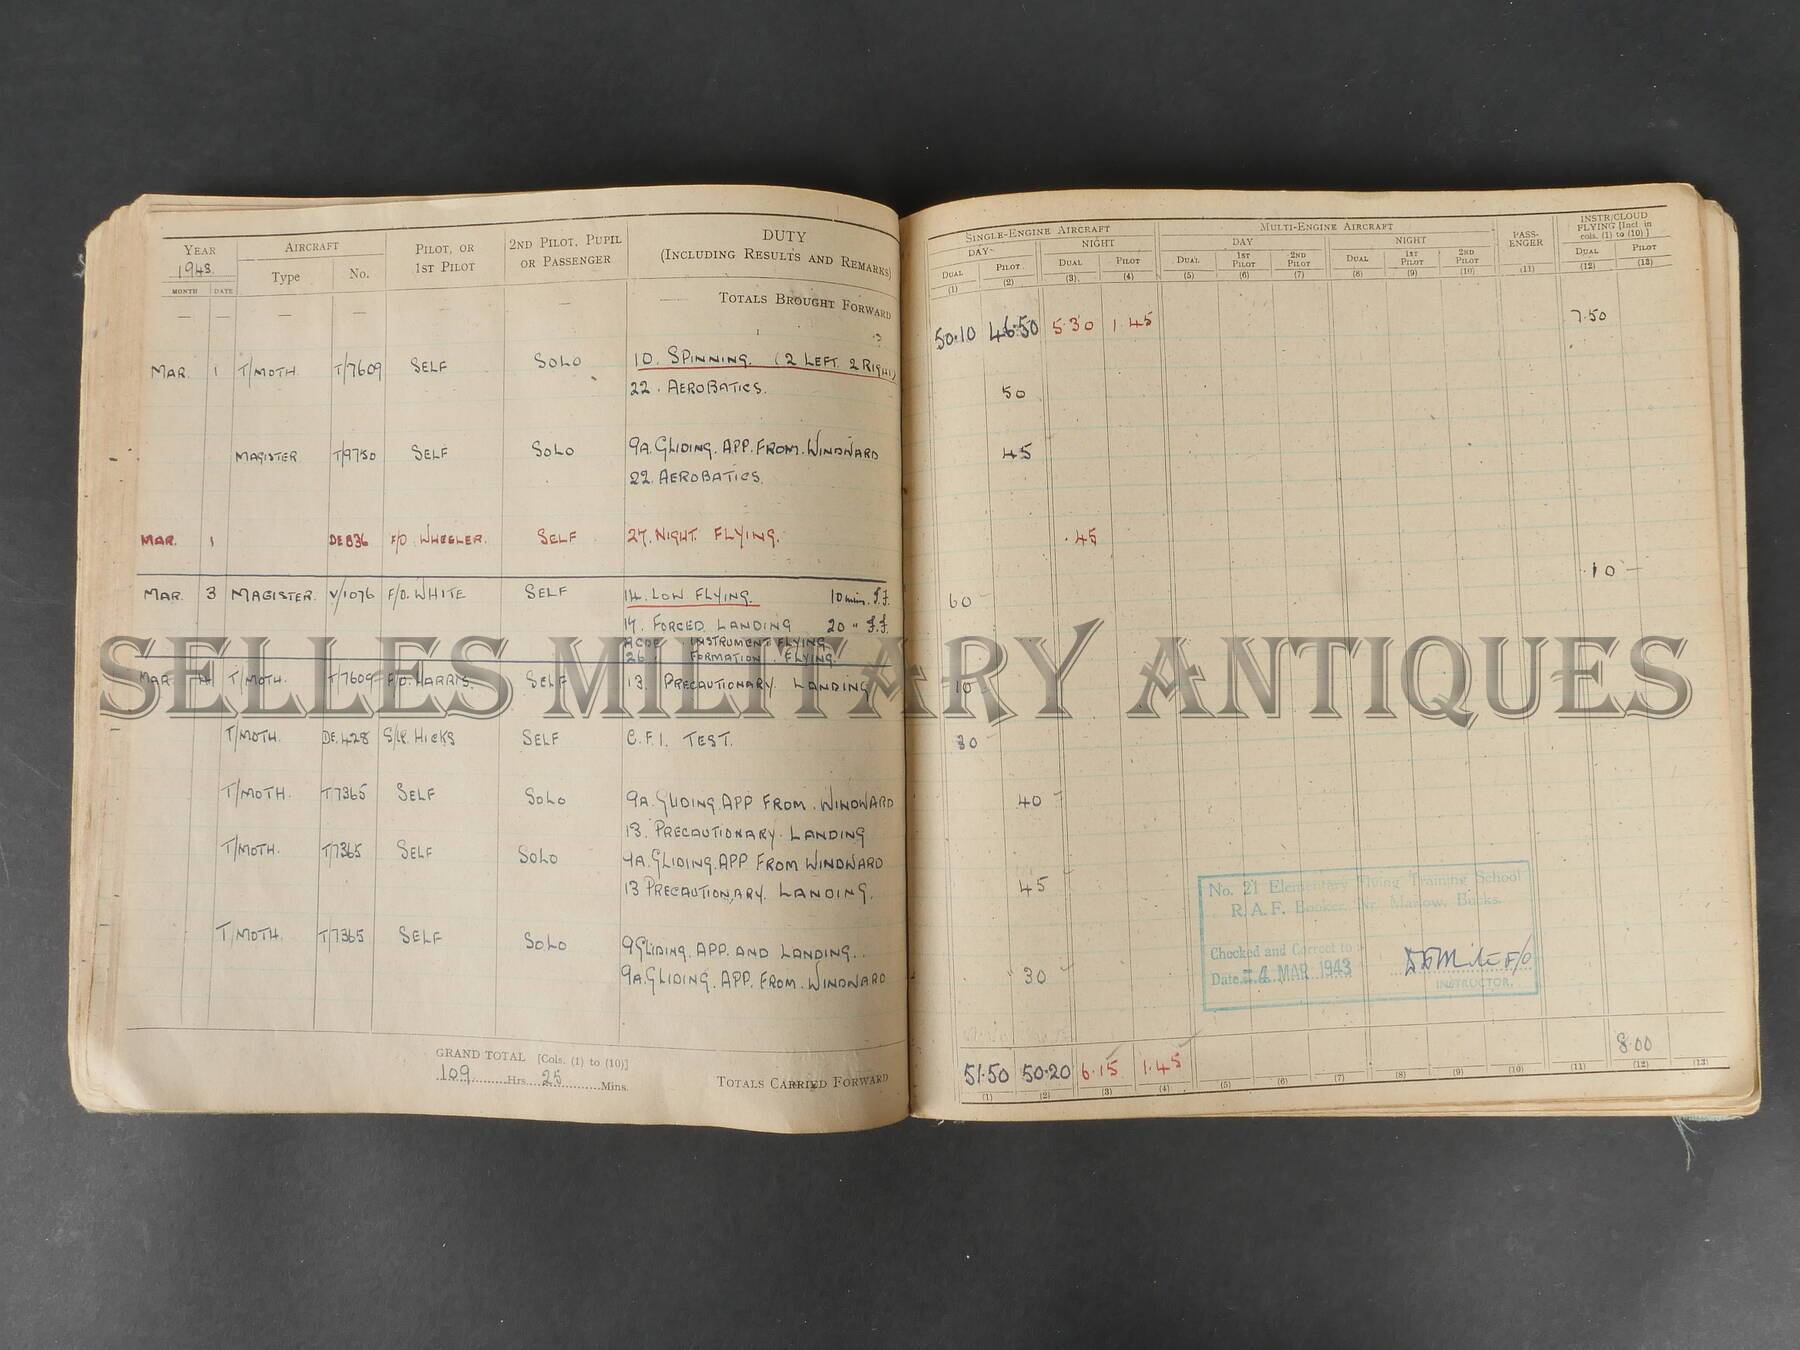 YEAR AIRCRAFT PILOT, OR 2ND PILOT, PUPIL DUTY
1943. Type No. 1ST PILOT OR PASSENGER (INCLUDING RESULTS AND REMARKS)
MONTH DATE
— — — — — — — TOTALS BROUGHT FORWARD
MAR. 1 T/MOTH. T/7609 SELF SOLO 10. SPINNING. (2 LEFT 2 RIGHT)
22. AEROBATICS.
MAGISTER T/9750 SELF SOLO 9A. GLIDING. APP. FROM. WINDWARD
22. AEROBATICS.
MAR. 1 DE836 F/O. WHEELER. SELF 27. NIGHT FLYING.
MAR. 3 MAGISTER. V/1076 F/O. WHITE SELF 14. LOW FLYING. 10 mins.
17. FORCED LANDING 20 "
INSTRUMENT FLYING
26. FORMATION. FLYING.
MAR T/MOTH. T/7609 F/O. HARRIS. SELF 13. PRECAUTIONARY. LANDING
T/MOTH. DE.428 S/LR. HICKS SELF C.F.I. TEST.
T/MOTH. T7365 SELF SOLO 9A. GLIDING. APP FROM. WINDWARD
13. PRECAUTIONARY. LANDING
T/MOTH. T/7365 SELF SOLO 9A. GLIDING. APP FROM WINDWARD
13 PRECAUTIONARY. LANDING.
T/MOTH. T/7365 SELF SOLO 9 GLIDING. APP. AND LANDING..
9A. GLIDING. APP. FROM. WINDWARD
GRAND TOTAL [Cols. (1) to (10)]
109 Hrs. 25 Mins. TOTALS CARRIED FORWARD
SINGLE-ENGINE AIRCRAFT MULTI-ENGINE AIRCRAFT PASS-ENGER INSTR/CLOUD FLYING [Incl. in cols. (1) to (10)]
DAY NIGHT DAY NIGHT
DUAL PILOT DUAL PILOT DUAL 1ST PILOT 2ND PILOT DUAL 1ST PILOT 2ND PILOT DUAL PILOT
(1) (2) (3) (4) (5) (6) (7) (8) (9) (10) (11) (12) (13)
50.10 46.50 5.30 1.45 7.50
50
45
.45
60 .10
10
30
40
45
30
No. 21 Elementary Flying Training School
R.A.F. Booker, Nr. Marlow, Bucks.
Checked and Correct to :
Date -4 MAR 1943 F/O
INSTRUCTOR.
51.50 50.20 6.15 1.45 8.00
(1) (2) (3) (4) (5) (6) (7) (8) (9) (10) (11) (12) (13)
SELLES MILITARY ANTIQUES